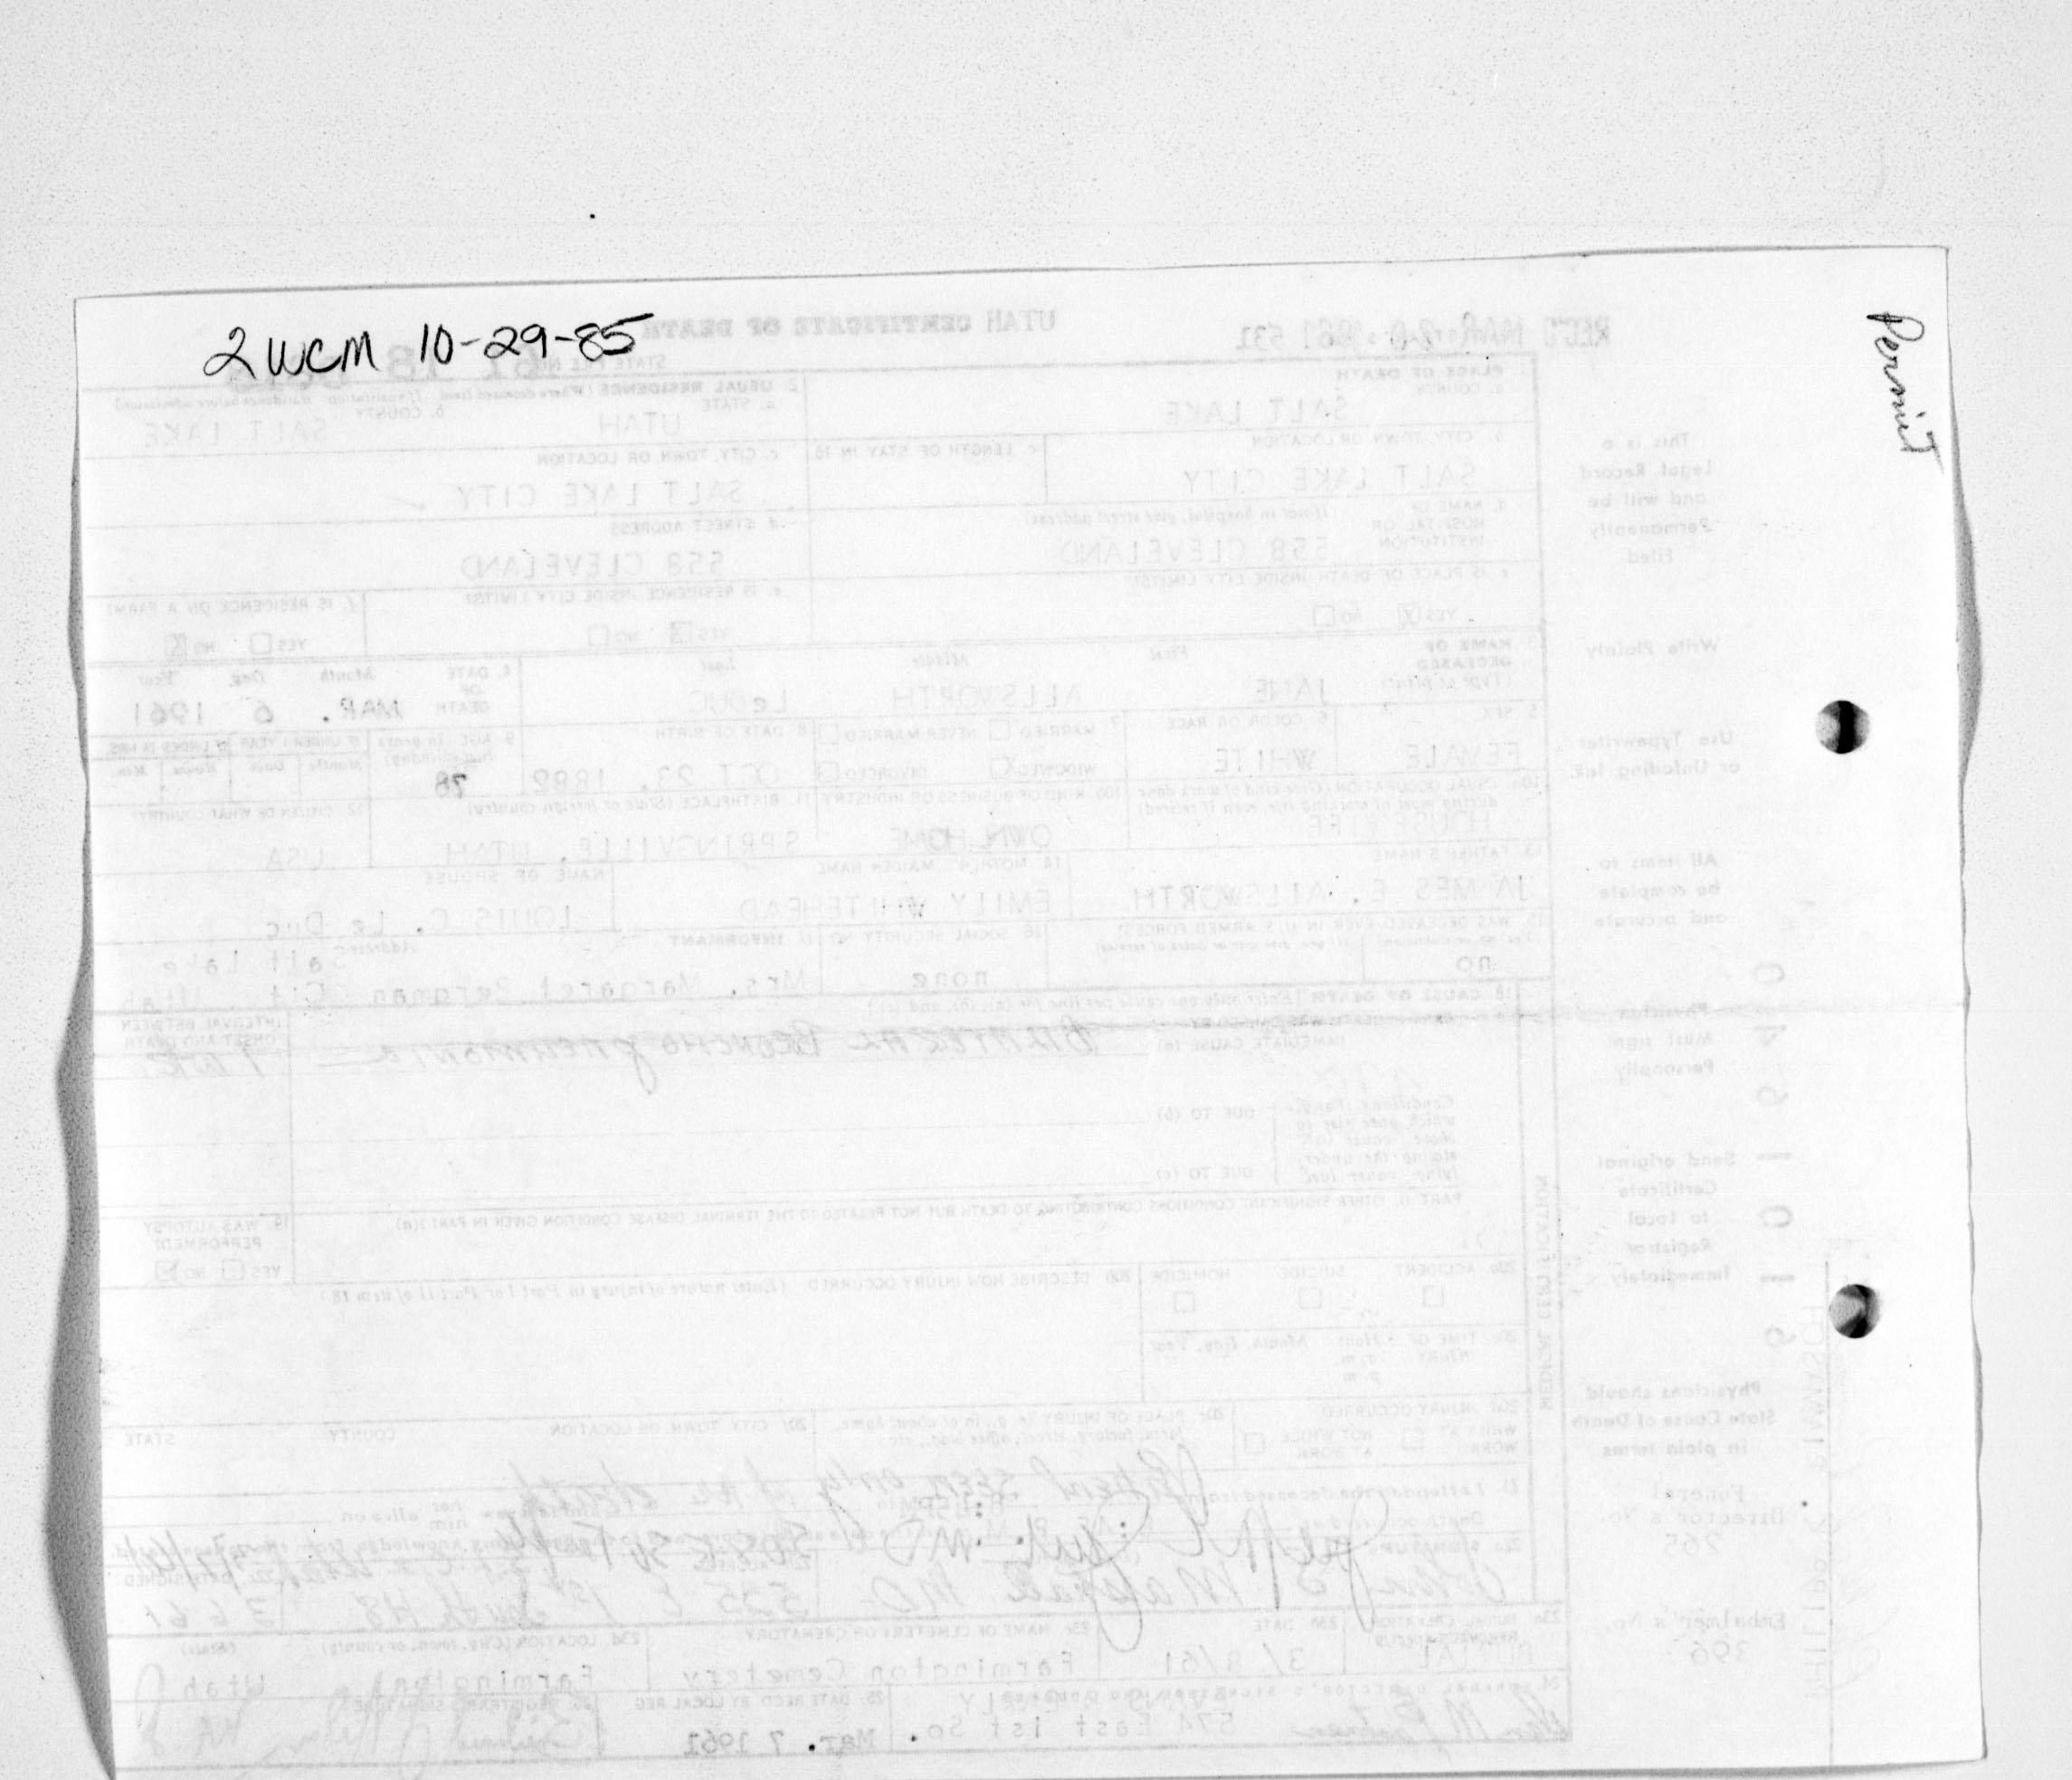 2 WCM 10-29-85
Permit
UTAH CERTIFICATE OF DEATH
REC'D MAR 20 1961 531
STATE FILE NO.
1. PLACE OF DEATH
a. COUNTY
SALT LAKE
2. USUAL RESIDENCE (Where deceased lived. If institution: Residence before admission)
a. STATE
UTAH
b. COUNTY
SALT LAKE
b. CITY, TOWN OR LOCATION
SALT LAKE CITY
c. LENGTH OF STAY IN 1b.
c. CITY, TOWN OR LOCATION
SALT LAKE CITY
d. NAME OF HOSPITAL OR INSTITUTION
(If not in hospital, give street address)
558 CLEVELAND
d. STREET ADDRESS
558 CLEVELAND
e. IS PLACE OF DEATH INSIDE CITY LIMITS?
YES X NO
e. IS RESIDENCE INSIDE CITY LIMITS?
YES X NO
f. IS RESIDENCE ON A FARM?
YES NO X
3. NAME OF DECEASED
(Type or print)
First Middle Last
JANE ALLSWORTH LeDUC
4. DATE OF DEATH
Month Day Year
MAR. 6 1961
5. SEX
FEMALE
6. COLOR OR RACE
WHITE
7. MARRIED NEVER MARRIED
WIDOWED X DIVORCED
8. DATE OF BIRTH
OCT 22, 1882
9. AGE (In years last birthday)
78
IF UNDER 1 YEAR
Months Days
IF UNDER 24 HRS.
Hours Min.
10a. USUAL OCCUPATION (Give kind of work done during most of working life, even if retired)
HOUSE WIFE
10b. KIND OF BUSINESS OR INDUSTRY
OWN HOME
11. BIRTHPLACE (State or foreign country)
SPRINGVILLE, UTAH
12. CITIZEN OF WHAT COUNTRY?
USA
13. FATHER'S NAME
JAMES E. ALLSWORTH
14. MOTHER'S MAIDEN NAME
EMILY WHITEHEAD
NAME OF SPOUSE
LOUIS C. Le Duc
15. WAS DECEASED EVER IN U.S. ARMED FORCES?
no
16. SOCIAL SECURITY NO.
none
17. INFORMANT
Address
Mrs. Margaret Bergman Salt Lake City, Utah
18. CAUSE OF DEATH (Enter only one cause per line for (a), (b), and (c).)
IMMEDIATE CAUSE (a)
Bilateral Broncho pneumonia
INTERVAL BETWEEN ONSET AND DEATH
1 wk.
DUE TO (b)
DUE TO (c)
PART II. OTHER SIGNIFICANT CONDITIONS CONTRIBUTING TO DEATH BUT NOT RELATED TO THE TERMINAL DISEASE CONDITION GIVEN IN PART I(a)
19. WAS AUTOPSY PERFORMED?
YES NO X
20a. ACCIDENT SUICIDE HOMICIDE
20b. DESCRIBE HOW INJURY OCCURRED (Enter nature of injury in Part I or Part II of item 18.)
20c. TIME OF INJURY
Hour Month, Day, Year
a. m.
p. m.
20d. INJURY OCCURRED
WHILE AT WORK NOT WHILE AT WORK
20e. PLACE OF INJURY (e. g., in or about home, farm, factory, street, office bldg., etc.)
20f. CITY, TOWN OR LOCATION COUNTY STATE
Patient seen only after death
22c. DATE SIGNED
3 6 61
23a. BURIAL, CREATION, REMOVAL
BURIAL
23b. DATE
3/ 9/61
23c. NAME OF CEMETERY OR CREMATORY
Farmington Cemetery
23d. LOCATION (City, town, or county) (State)
Farmington Utah
24. FUNERAL DIRECTOR'S SIGNATURE
574 East 1st So.
25. DATE REC'D BY LOCAL REG.
Mar. 7 1961
26. REGISTRAR'S SIGNATURE
MEDICAL CERTIFICATION
This is a
Legal Record
and will be
Permanently
Filed
Write Plainly
Use Typewriter
or Unfading Ink
All items to
be complete
and accurate
Physician
Must sign
Personally
Send original
Certificate
to Local
Registrar
Immediately
Physicians should
State Cause of Death
in plain terms
Funeral
Director's No.
265
Embalmer's No.
396